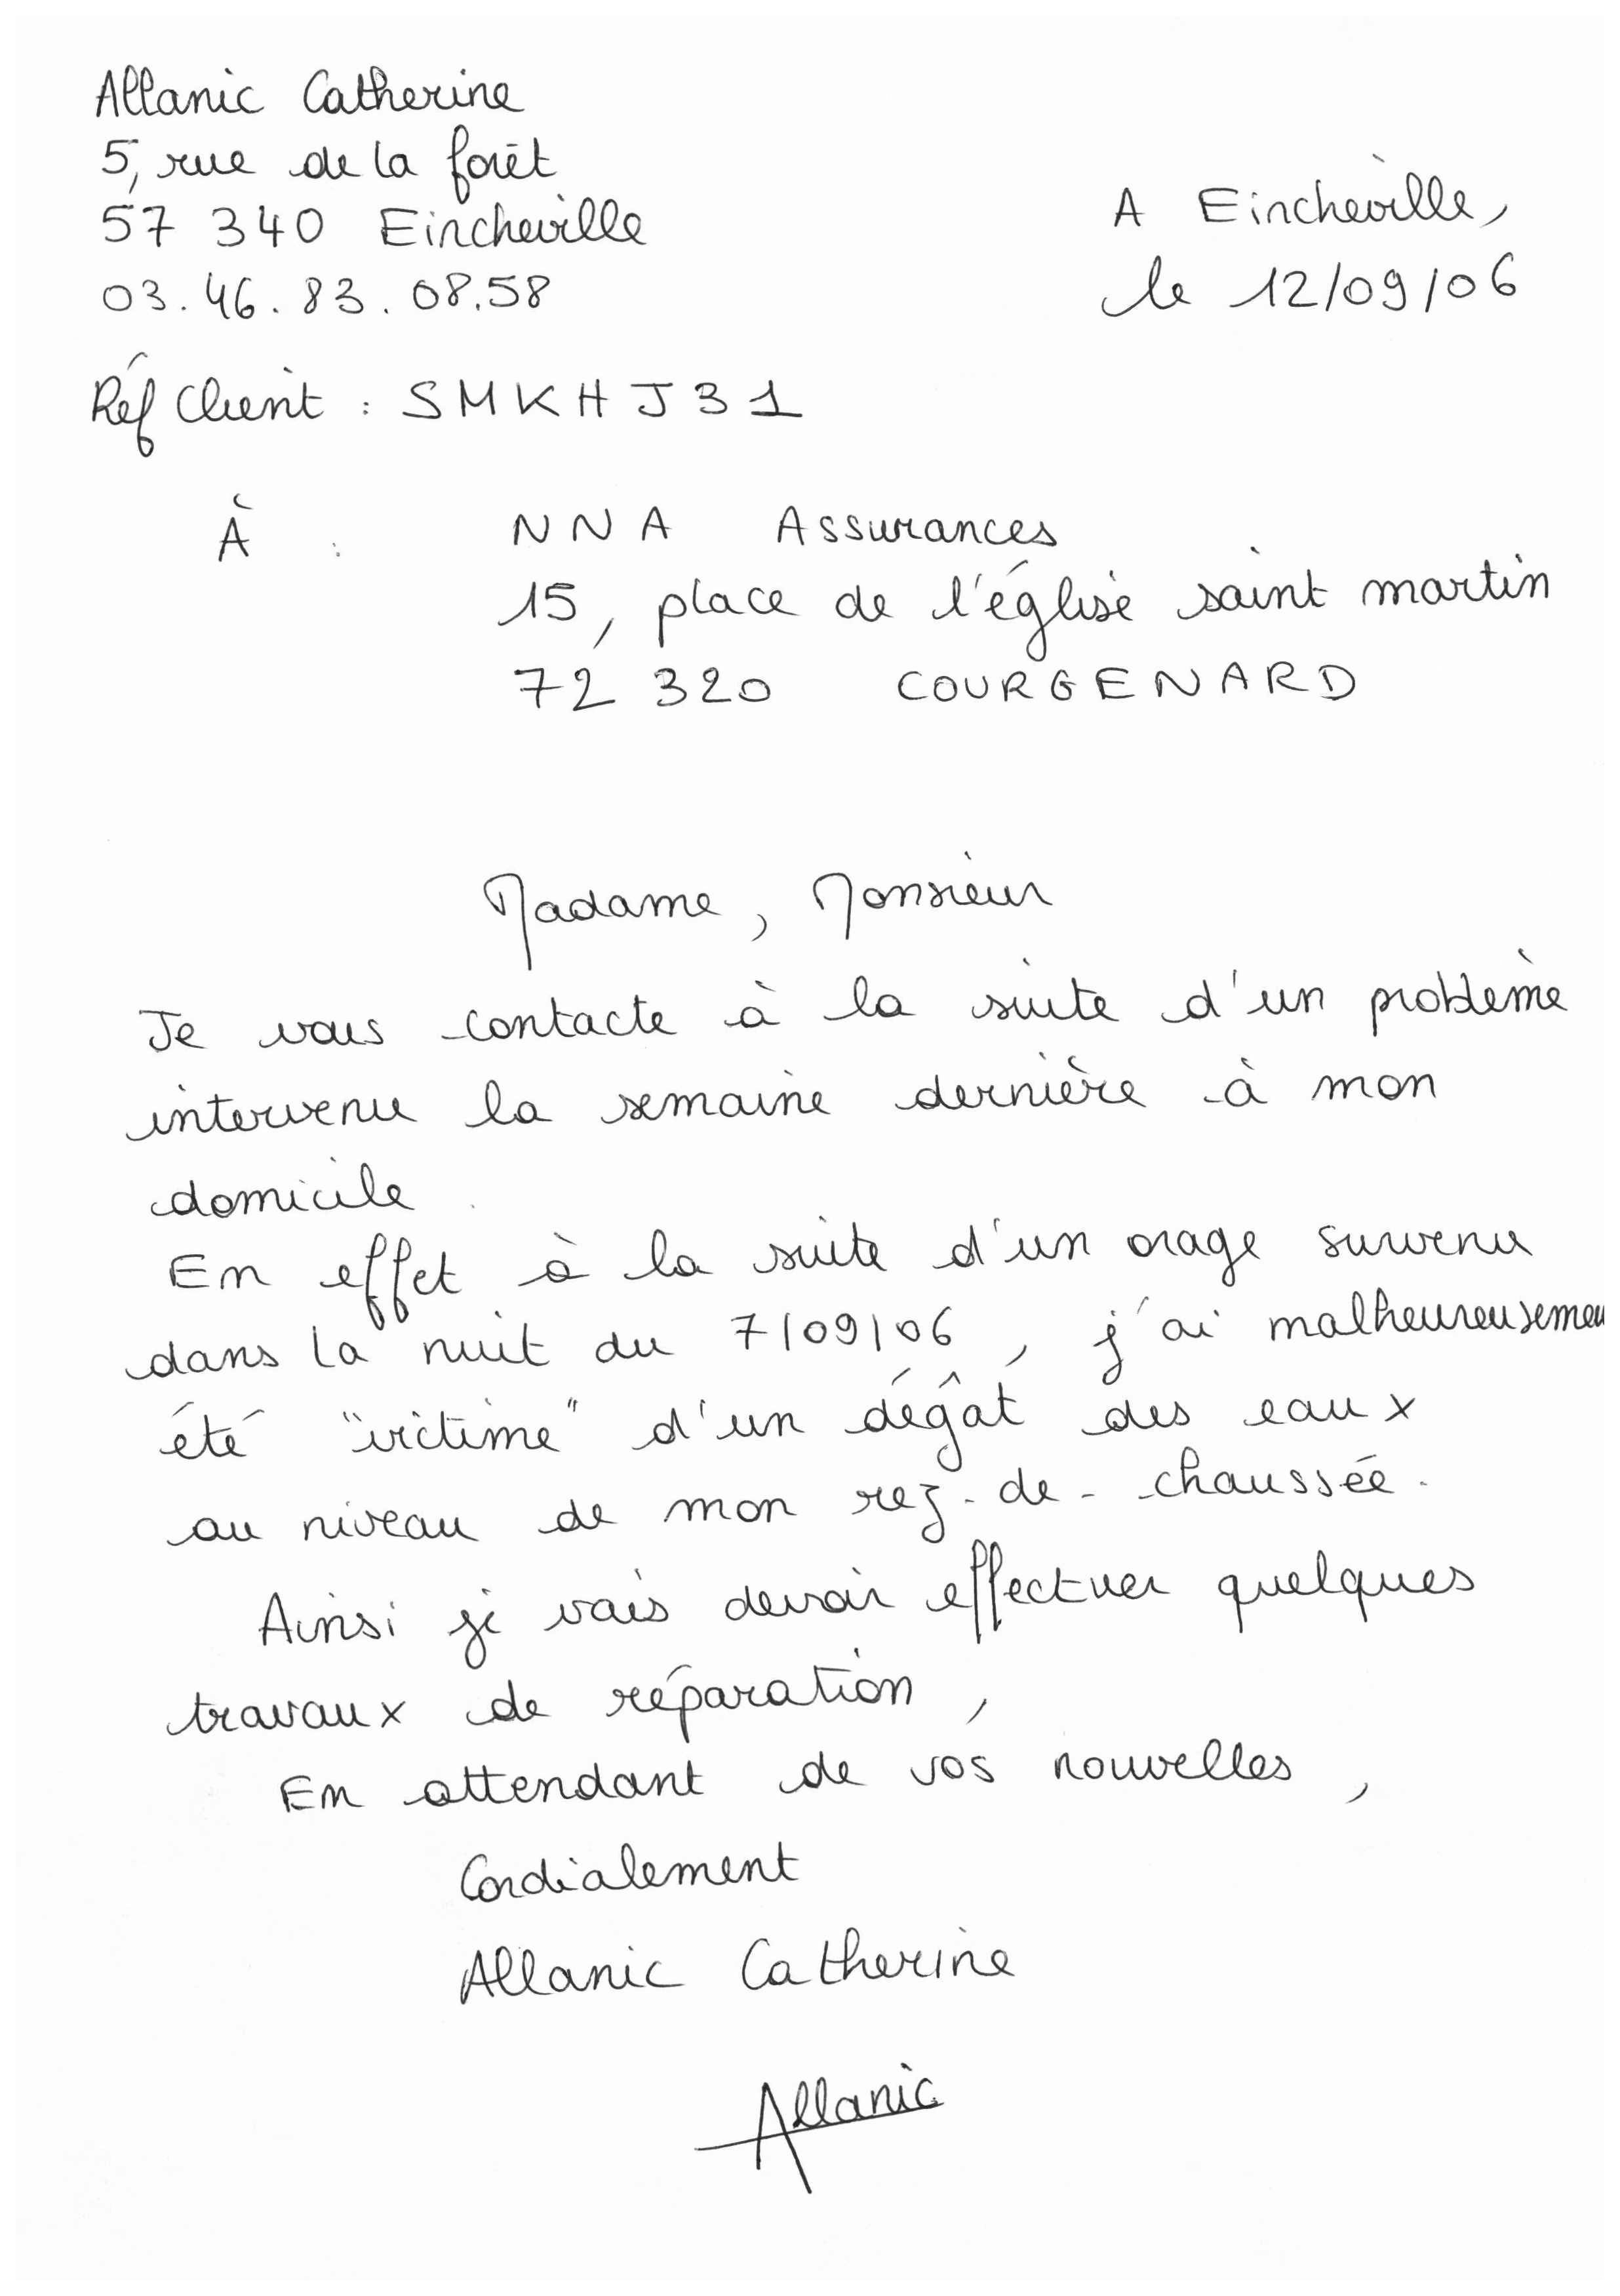 Allanic Catherine
5, rue de la forêt
57 340 Eincheville
03.46.83.08.58
A Eincheville,
le 12/09/06
Réf Client : SMKHJ31
À :
NNA Assurances
15, place de l'église saint martin
72 320 COURGENARD
Madame, Monsieur
Je vous contacte à la suite d'un problème
intervenu la semaine dernière à mon
domicile.
En effet à la suite d'un orage survenu
dans la nuit du 7/09/06, j'ai malheureusemen
été "victime" d'un dégât des eaux
au niveau de mon rez-de-chaussée.
Ainsi je vais devoir effectuer quelques
travaux de réparation,
En attendant de vos nouvelles,
Cordialement
Allanic Catherine
Allanic